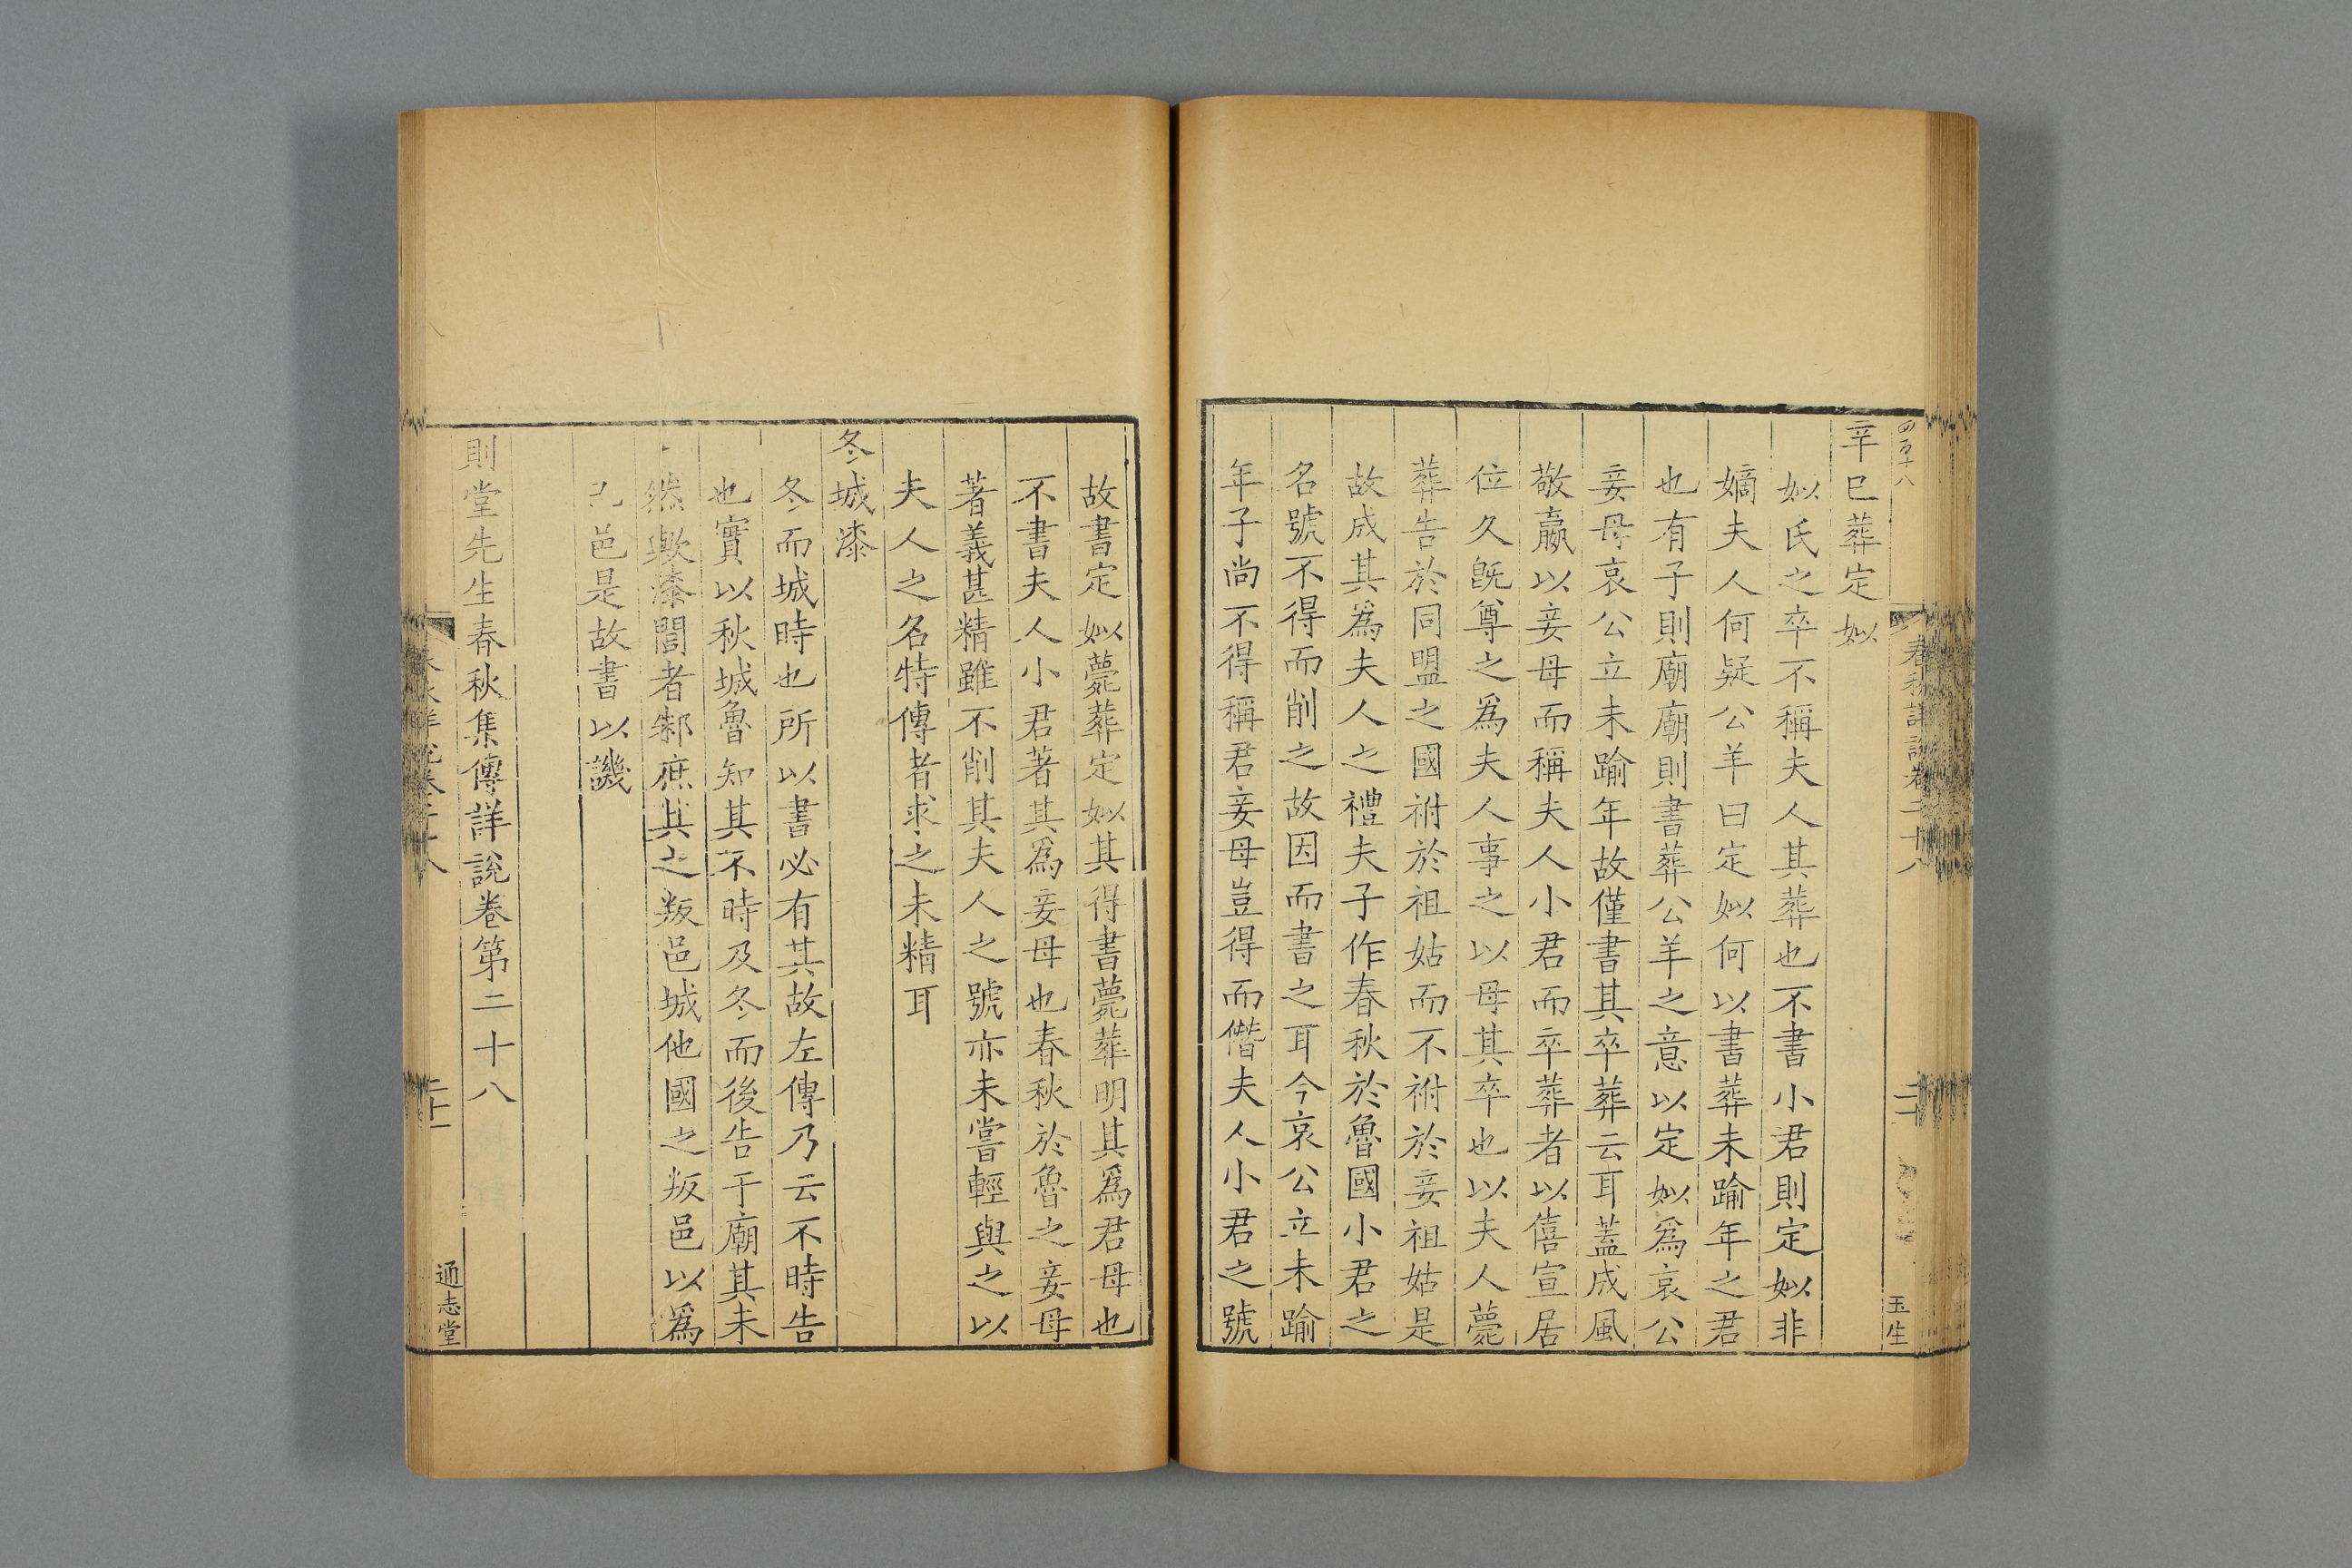 四百十八
春秋詳說卷二十八
二十
玉生
辛巳葬定姒
姒氏之卒不稱夫人其葬也不書小君則定姒非
嫡夫人何疑公羊曰定姒何以書葬未踰年之君
也有子則廟廟則書葬公羊之意以定姒爲哀公
妾母哀公立未踰年故僅書其卒葬云耳蓋成風
敬嬴以妾母而稱夫人小君而卒葬者以僖宣居
位久旣尊之爲夫人事之以母其卒也以夫人薨
葬告於同盟之國祔於祖姑而不祔於妾祖姑是
故成其爲夫人之禮夫子作春秋於魯國小君之
名號不得而削之故因而書之耳今哀公立未踰
年子尚不得稱君妾母豈得而僭夫人小君之號
故書定姒薨葬定姒其得書薨葬明其爲君母也
不書夫人小君著其爲妾母也春秋於魯之妾母
著義甚精雖不削其夫人之號亦未嘗輕與之以
夫人之名特傳者求之未精耳
冬城漆
冬而城時也所以書必有其故左傳乃云不時告
也實以秋城魯知其不時及冬而後告于廟其未
然歟漆閭者邾庶其之叛邑城他國之叛邑以爲
己邑是故書以譏
則堂先生春秋集傳詳說卷第二十八
通志堂